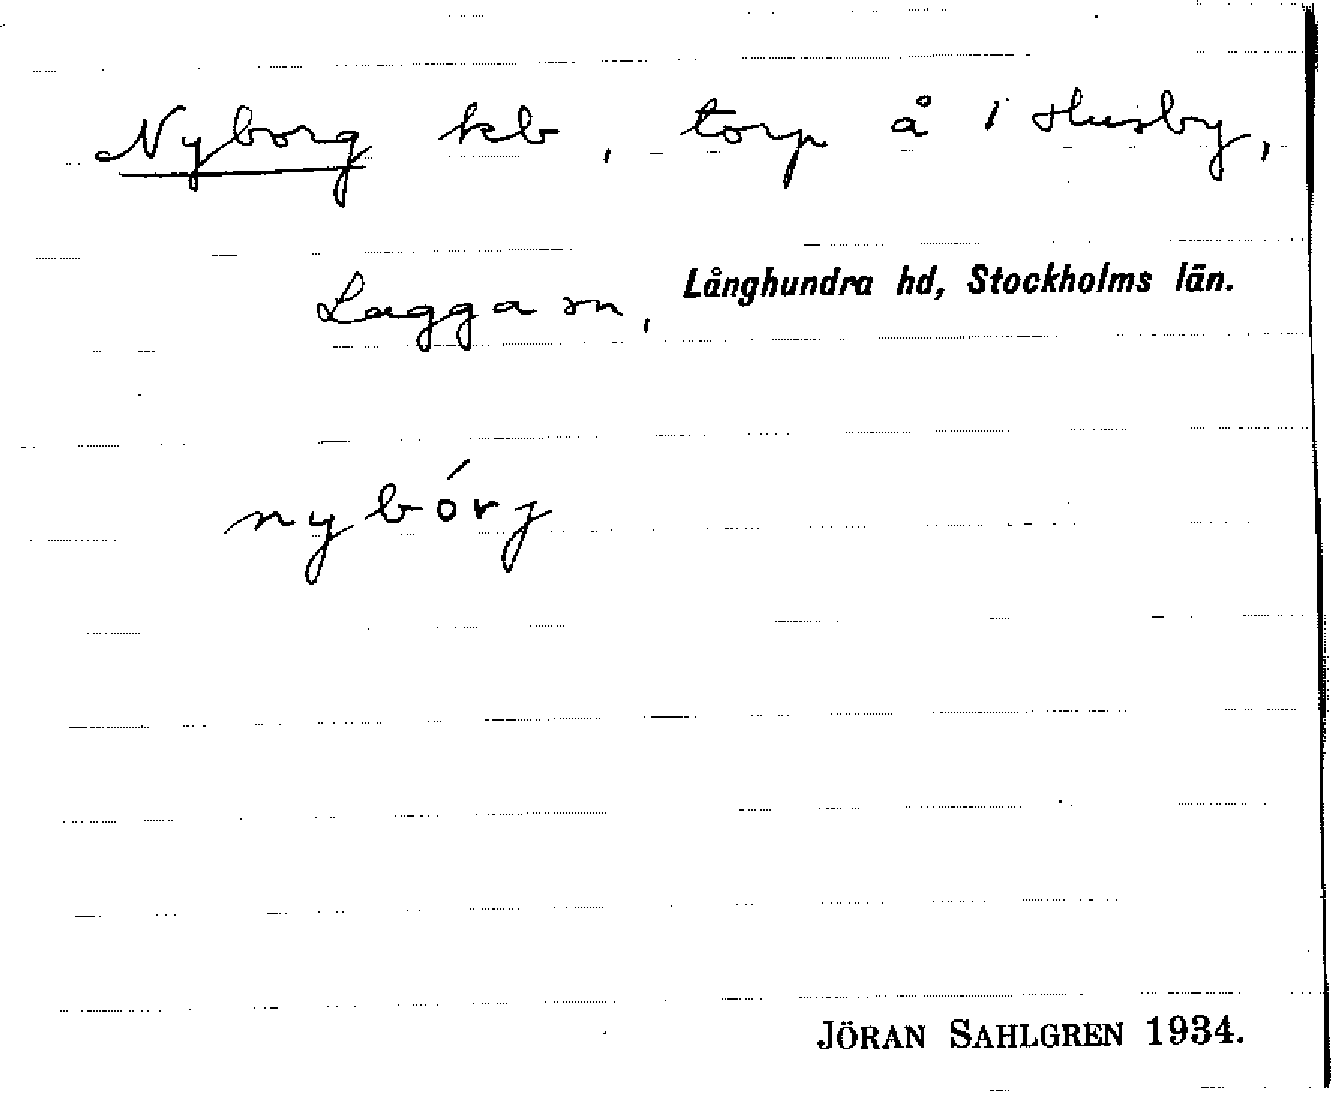 Nyborg kb, torp å 1 Husby,
Lagga sn, Långhundra hd, Stockholms län.
nybórj
JÖRAN SAHLGREN 1934.